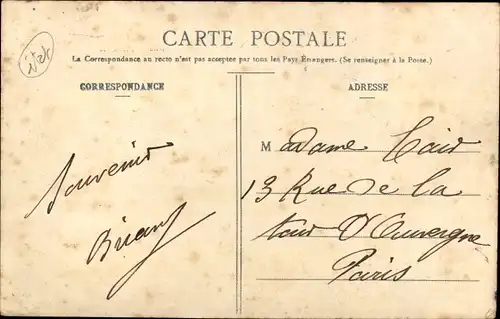 CARTE POSTALE
La Correspondance au recto n'est pas acceptée par tous les Pays Étrangers. (Se renseigner à la Poste.)
CORRESPONDANCE
ADRESSE
Souvenir
Madame
13 Rue de la
tour D'Auvergne
Paris